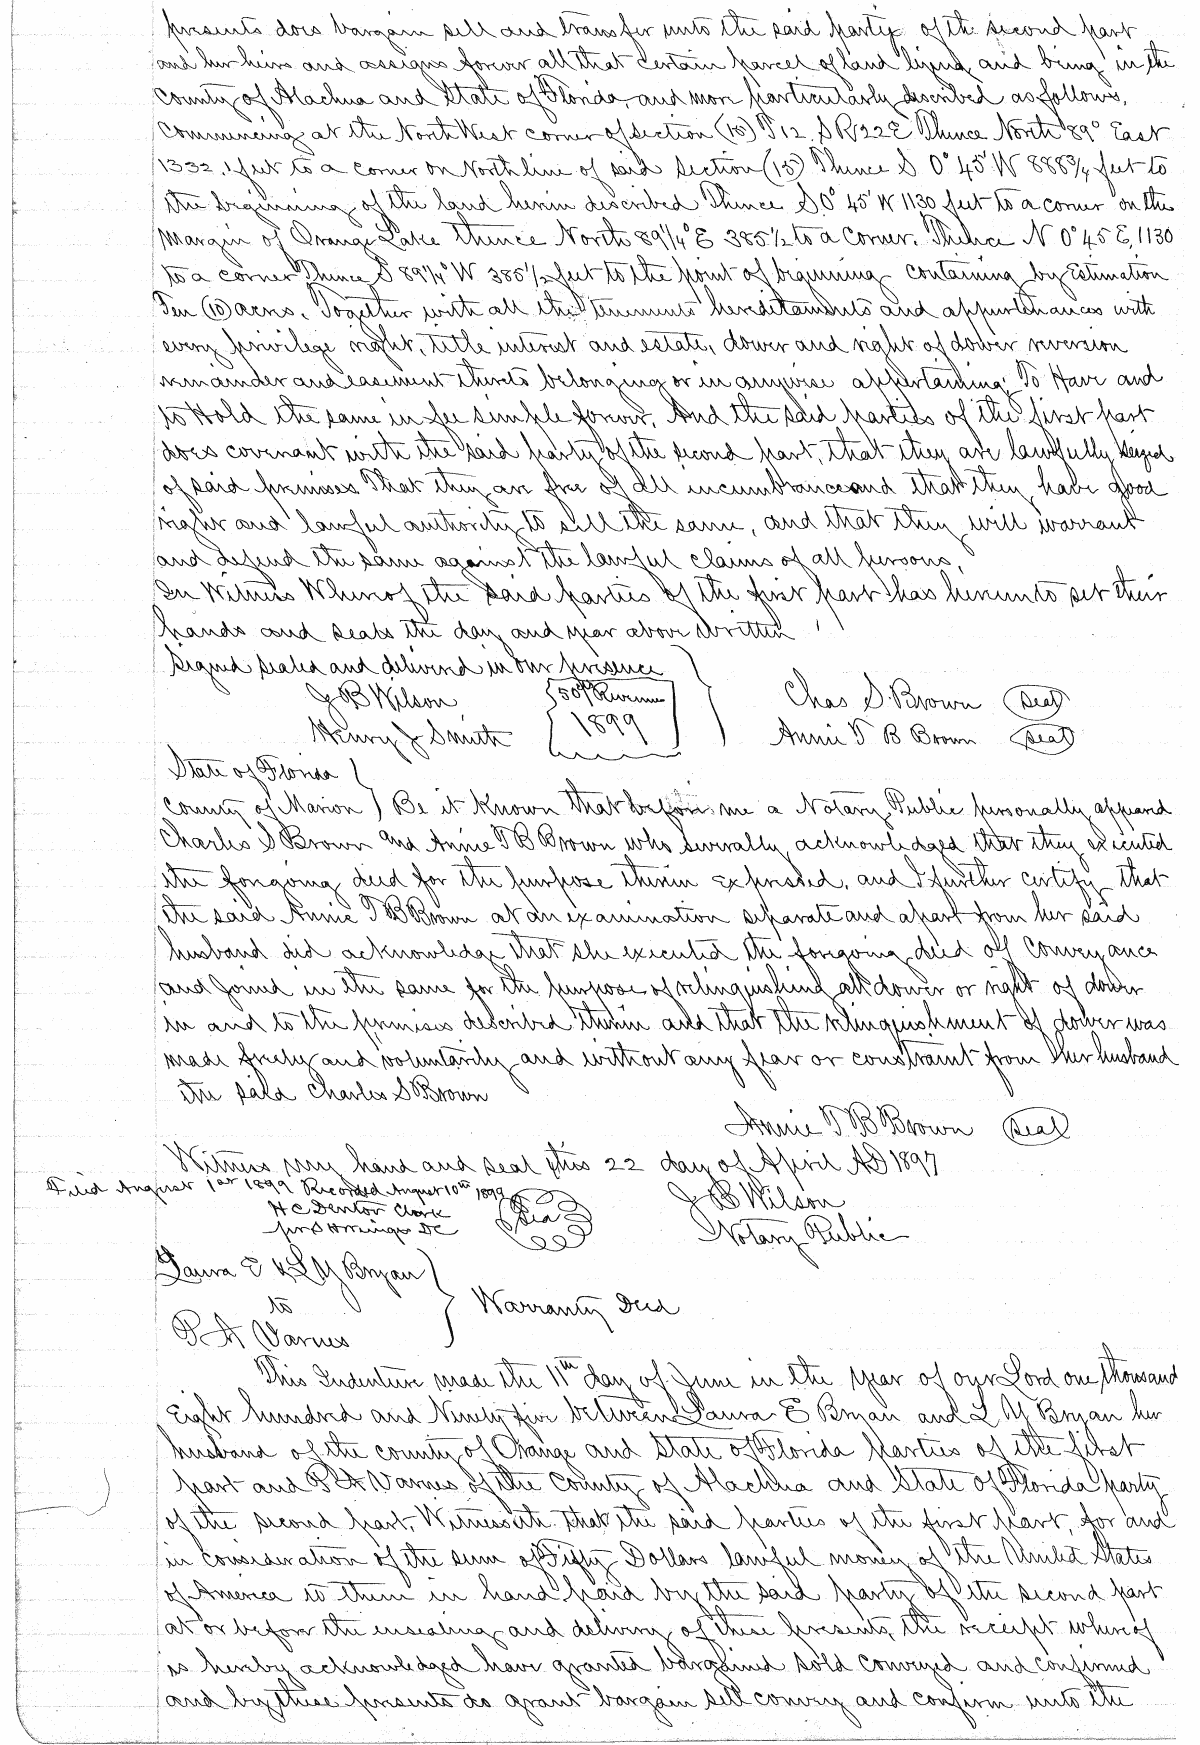 presents does bargain sell and transfer unto the said party of the second part
and her heirs and assigns forever all that certain parcel of land lying and being in the
County of Alachua and State of Florida, and more particularly described as follows,
Commencing at the North West corner of section (15) T 12 S R 22 E Thence North 89° East
1332.1 feet to a corner on North line of said Section (15) Thence S 0° 45' W 888 3/4 feet to
the beginning of the land herein described Thence S. 0° 45' W 1130 feet to a corner on the
Margin of Orange Lake thence North 89 1/4° E 385 1/2 to a corner. Thence N 0° 45 E, 1130
to a corner Thence S 89 1/4° W 385 1/2 feet to the point of beginning containing by Estimation
Ten (10) acres. Together with all the tenements hereditaments and appurtenances with
every privilege right, title interest and estate, dower and right of dower reversion
remainder and easement thereto belonging or in anywise appertaining: To Have and
to Hold the same in fee simple forever. And the said parties of the first part
does covenant with the said party of the second part, that they are lawfully seized
of said premises That they are free of all incumbrances and that they have good
right and lawful authority to sell the same, and that they will warrant
and defend the same against the lawful claims of all persons,
In Witness Whereof the said parties of the first part has hereunto set their
hands and seals the day and year above written
Signed sealed and delivered in our presence
J B Wilson 50¢ Revenue Chas S. Brown (Seal)
Henry J Smith 1899 Annie T B Brown (Seal)
State of Florida
County of Marion } Be it Known that before me a Notary Public personally appeared
Charles S Brown and Annie T B Brown who severally acknowledged that they executed
the foregoing deed for the purpose therein expressed, and I further certify that
the said Annie T B Brown at an examination separate and apart from her said
husband did acknowledge that she executed the foregoing deed of Conveyance
and Joined in the same for the purpose of relinquishing all dower or right of dower
in and to the premises described therein and that the relinquishment of dower was
made freely and voluntarily and without any fear or constraint from her husband
the said Charles S Brown
Annie T. B Brown (Seal)
Witness my hand and seal this 22 day of April AD 1897
Filed August 1st 1899 Recorded August 10th 1899
J B Wilson
H C Denton Clerk (Seal)
Notary Public
DC
Laura E & L Y Bryan
to } Warranty Deed
P A Varnes
This Indenture made the 11th day of June in the year of our Lord one thousand
Eight hundred and Ninety five between Laura E Bryan and L Y Bryan her
husband of the county of Orange and State of Florida parties of the first
part and P A Varnes of the County of Alachua and State of Florida party
of the second part, Witnesseth that the said parties of the first part, for and
in consideration of the sum of Fifty Dollars lawful money of the United States
of America to them in hand paid by the said party of the second part
at or before the ensealing and delivery of these presents, the receipt whereof
is hereby acknowledged have granted bargained sold conveyed and confirmed
and by these presents do grant bargain sell convey and confirm unto the